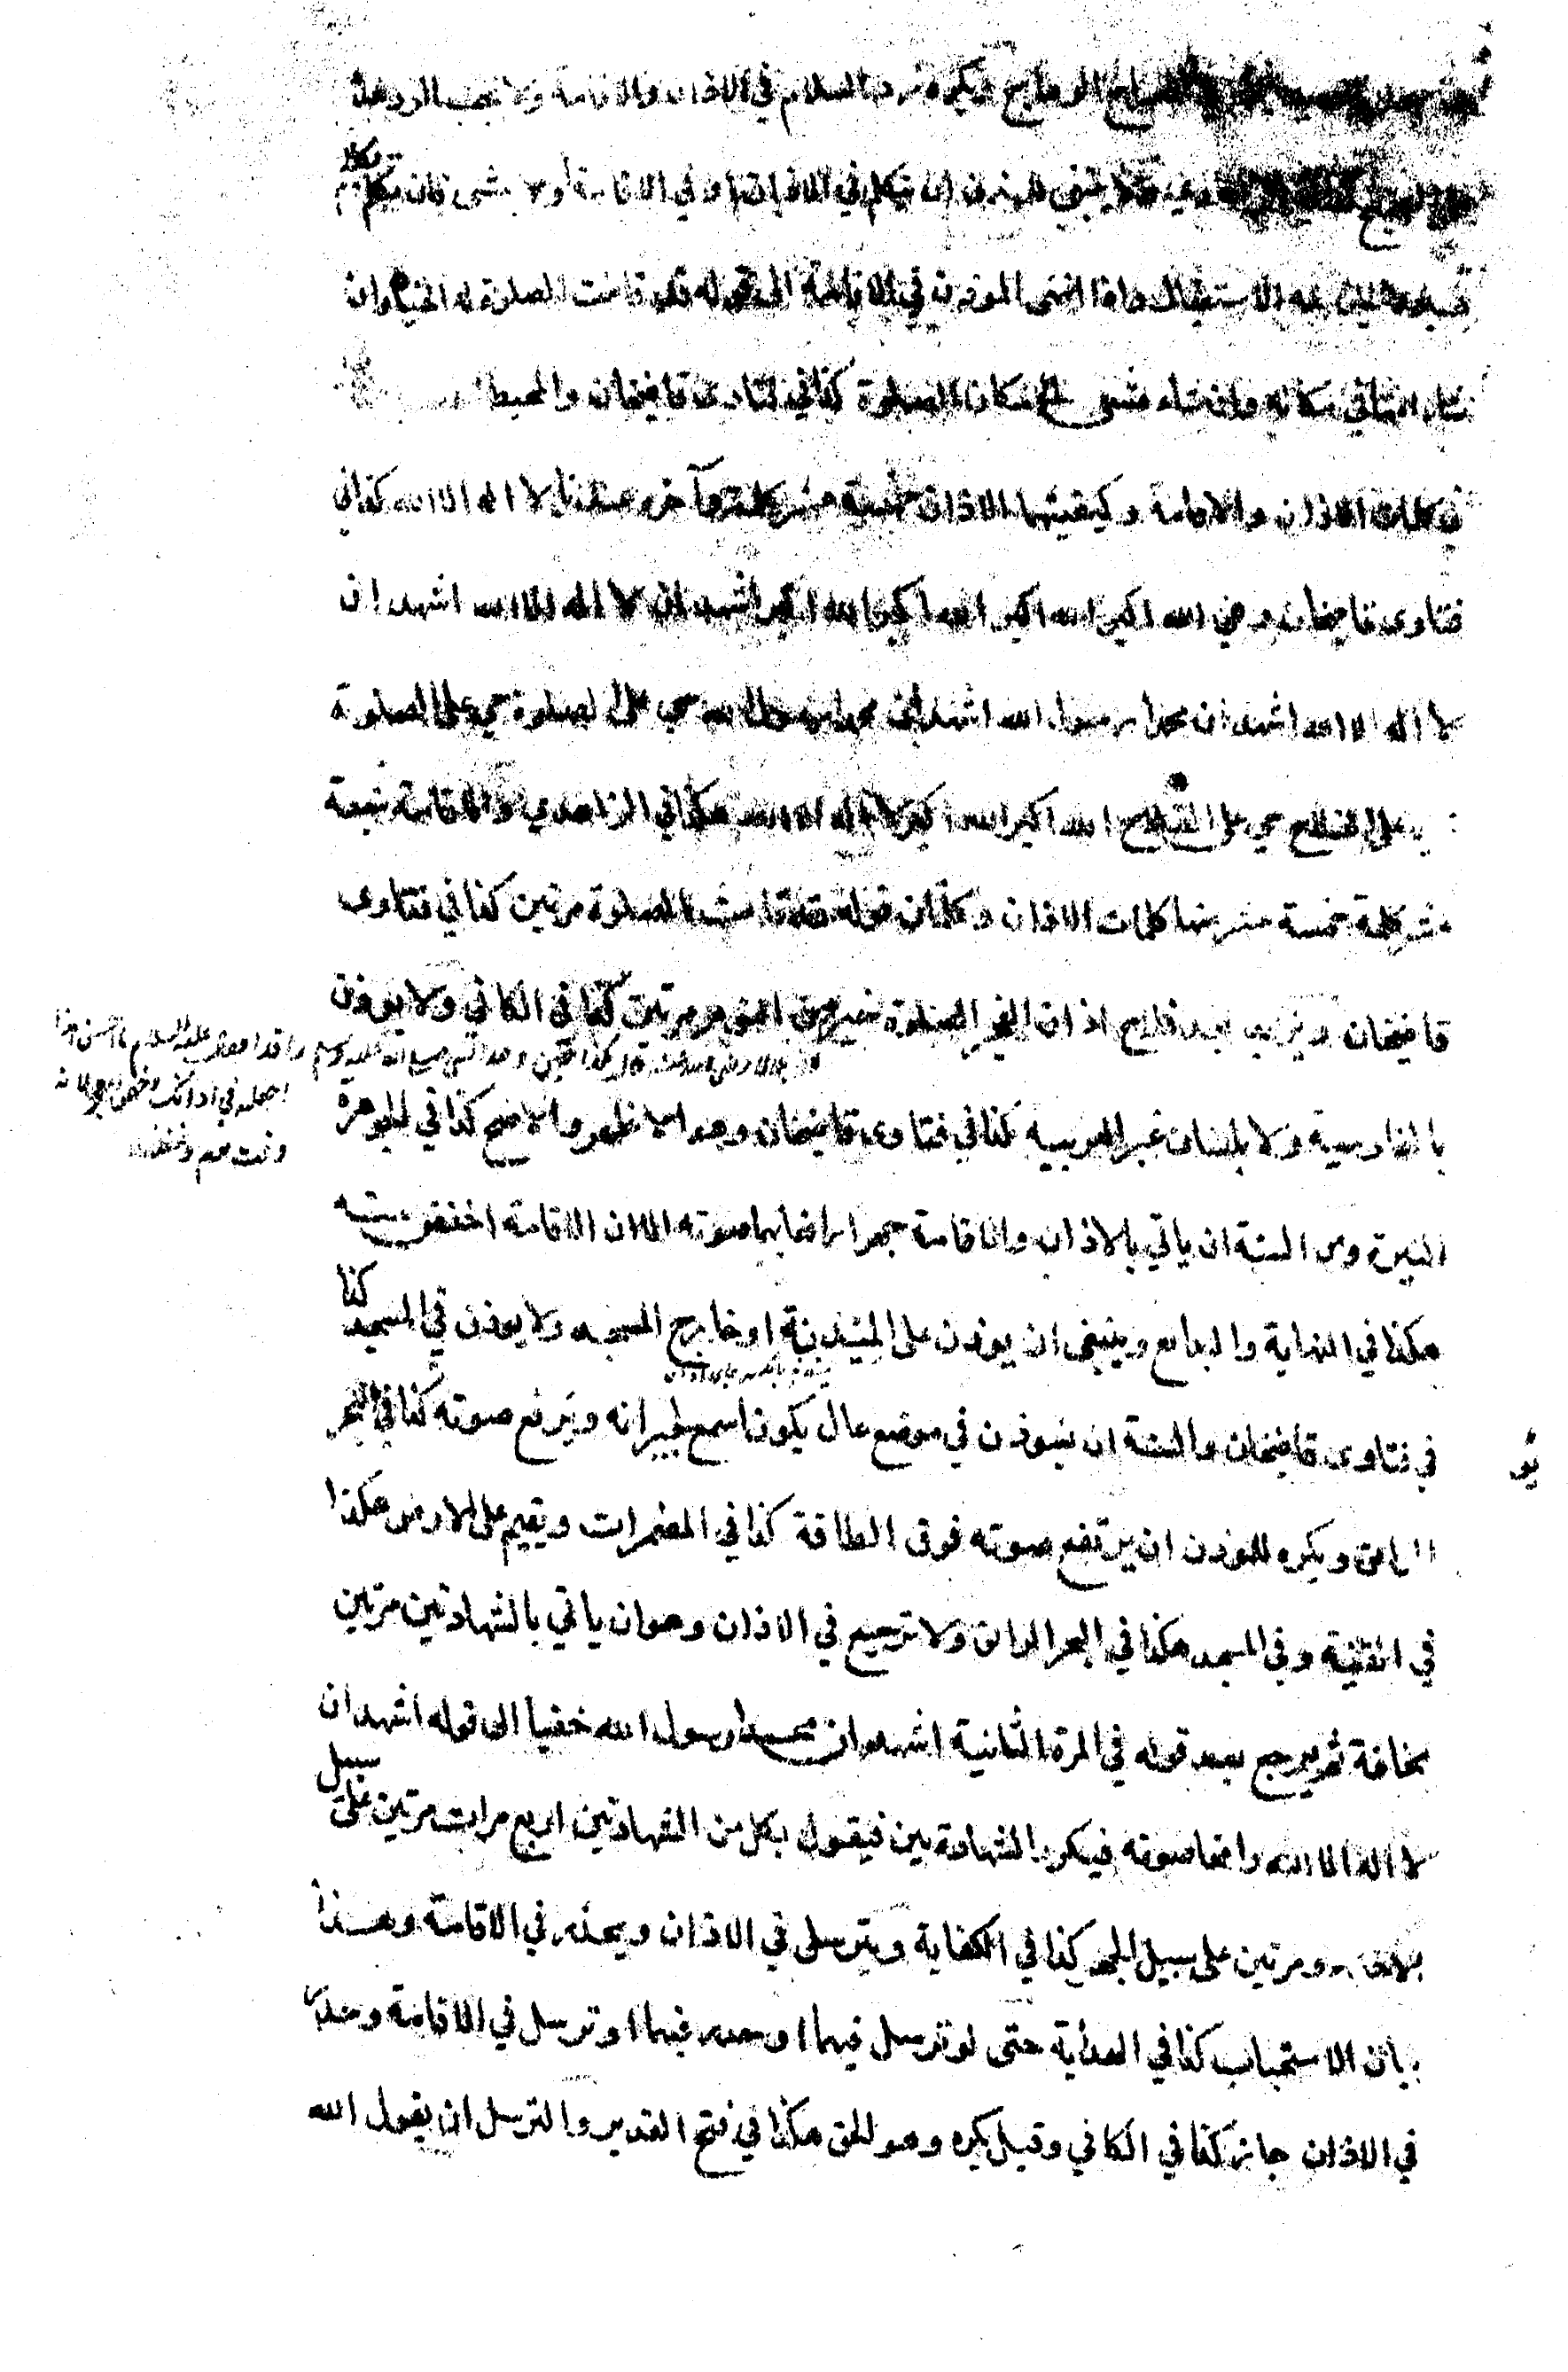 ويكره رد السلام في الاذان والاقامة ولا يجب الرد بعده
ولا ينبغي للمؤذن ان يتكلم في الاذان او في الاقامة او يمشي فان تكلم
الاستقبال واذا انتهى المؤذن في الاقامة الى قوله قد قامت الصلوة له الخيار ان
شاء اتمها في مكانه وان شاء مشى الى مكان الصلوة كذا في فتاوى قاضيخان والمحيط
في كلمات الاذان والاقامة وكيفيتهما الاذان خمسة عشر كلمة وآخره عندنا لا اله الا الله كذا في
فتاوى قاضيخان وهي الله اكبر الله اكبر الله اكبر الله اكبر اشهد ان لا اله الا الله اشهد ان
لا اله الا الله اشهد ان محمدا رسول الله اشهد ان محمدا رسول الله حي على الصلوة حي على الصلوة
على الفلاح حي على الفلاح الله اكبر الله اكبر لا اله الا الله هكذا في الزاهدي والاقامة سبعة
عشر كلمة خمسة عشر منها كلمات الاذان وكلمتان قوله قد قامت الصلوة مرتين كذا في فتاوى
قاضيخان ويزيد بعد فلاح اذان الفجر الصلوة خير من النوم مرتين كذا في الكافي ولا يؤذن
بالفارسية ولا بلسان غير العربية كذا في فتاوى قاضيخان وهو الاظهر والاصح كذا في الجوهرة
النيرة ومن السنة ان ياتي بالاذان والاقامة جهرا رافعا بهما صوته الا ان الاقامة اخفض منه
هكذا في النهاية والبدائع وينبغي ان يوذن على الميذنة او خارج المسجد ولا يوذن في المسجد كذا
في فتاوى قاضيخان والسنة ان يوذن في موضع عال يكون اسمع لجيرانه ويرفع صوته كذا في البحر
الرائق ويكره للموذن ان يرتفع صوته فوق الطاقة كذا في المضمرات ويقيم على الارض هكذا
في القنية وفي المسجد هكذا في البحر الرائق ولا ترجيع في الاذان وهو ان ياتي بالشهادتين مرتين
مخافة ثم يرجع بعد قوله في المرة الثانية اشهد ان محمدا رسول الله خفيا الى قوله اشهد ان
لا اله الا الله رافعا صوته فيكرر الشهادتين فيقول بكل من الشهادتين اربع مرات مرتين على سبيل
ومرتين على سبيل الجهر كذا في الكفاية ويترسل في الاذان ويحدر في الاقامة وهذا
بيان الاستحباب كذا في الهداية حتى لو ترسل فيهما او حدر فيهما او ترسل في الاقامة وحدر
في الاذان جاز كذا في الكافي وقيل يكره وهو الحق هكذا في فتح القدير والترسل ان يقول الله